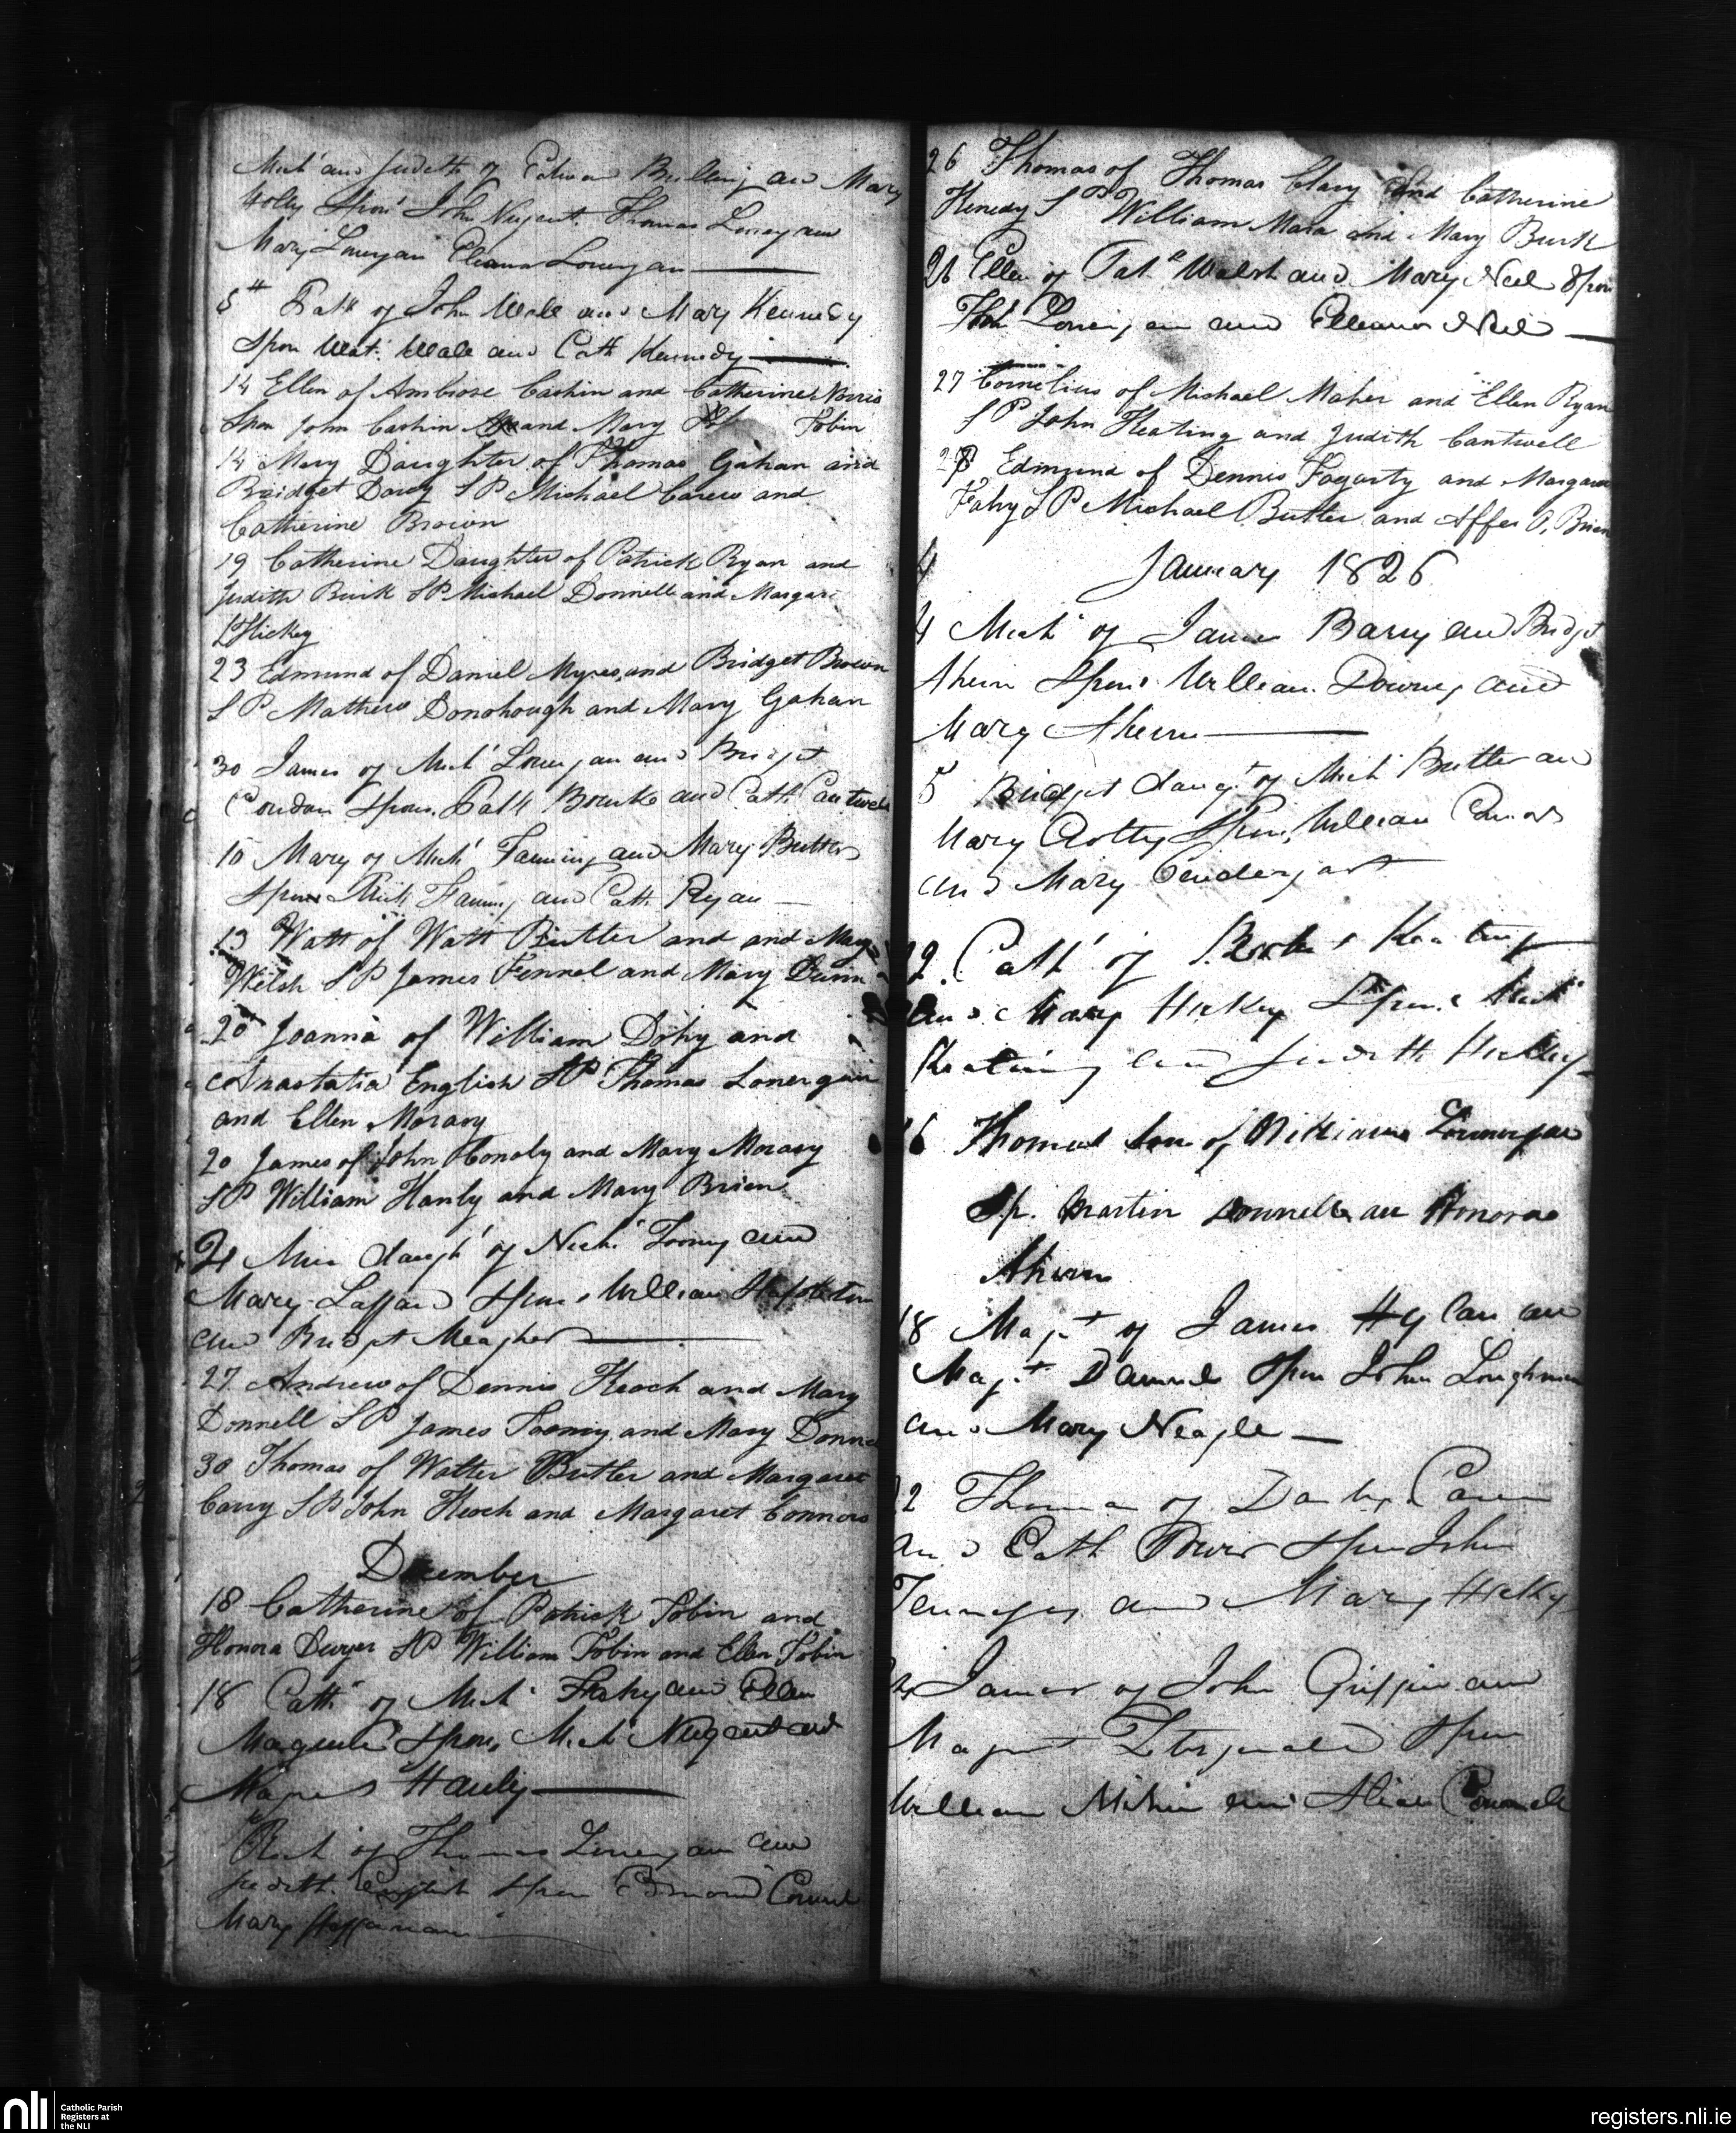 Mich and Judeth of Edmon and Mary
Holly Spon John Nugent Thomas Lonegan
Mary Lonergan Eleanor Lonergan
5th Patk of John Wale and Mary Kennedy
Spon Watt Wale and Cath Kennedy
14 Ellen of Ambrose Cashin and Catherine Norris
Spon John Cashin and Mary Tobin
14 Mary Daughter of Thomas Gahan and
Bridget Darcy SP Michael Carew and
Catherine Brown
19 Catherine Daughter of Patrick Ryan and
Judith Burk SP Michael Donnell and Margar
Hickey
23 Edmund of Daniel Myres and Bridget Brown
SP Mathew Donohough and Mary Gahan
30 James of Mich Lonergan and Bridget
Condon Spon Patk Bourke and Cath Cantwell
10 Mary of Mich Fanning and Mary Butler
Spon Mich Fanning and Cath Ryan
13 Watt of Watt Butler and and Mary
Welsh SP James Fennel and Mary Dunn
20 Joanna of William Dohy and
Anastatia English SP Thomas Lonergan
and Ellen Morasy
20 James of John Conoly and Mary Morasy
SP William Hanly and Mary Brien
21 daugh of Nich Toomy and
Mary Laffan Spons William Stapelton
and Bridget Meagher
27 Andrew of Dennis Keoch and Mary
Donnell SP James Toomy and Mary Donne
30 Thomas of Walter Butler and Margaret
Carry SP John Keoch and Margaret Connors
December
18 Catherine of Patrick Tobin and
Honora Dwyer SP William Tobin and Ellen Tobin
18 Cath of Mich Fahy and Ellen
Spons Mich Nugent and
Hanly
of Thomas Lonergan and
Judith English Spon Connel
Mary Heffernan
26 Thomas of Thomas Clary and Catherine
Kenedy SP William Mara and Mary Burk
26 Ellen of Patk Walsh and Mary Neel Spon
Lonergan and Elleanor Neil
27 Cornelius of Michael Maher and Ellen Ryan
SP John Keating and Judith Cantwell
27 Edmund of Dennis Fogarty and Margare
Fahy SP Michael Butler and Affee O, Brien
January 1826
4 Mich of James Barry and Bridget
Ahern Spons William Downey and
Mary Ahern
5 Bridget daugt of Mich Butler and
Mary Crotty Spons William Connors
and Mary Pendergast
12 Cath of Keating
and Mary Hickey Spons Mich
Keating and Judith Hickey
16 Thomas son of William Lonnergan
Sp. Martin Donnell an Honora
Ahern
18 Magt of James Hylan and
Magt Daniel Spon John Loughman
and Mary Neagle
22 Thomas of Darby Carew
and Cath Power Spon John
and Mary Hickey
James of John Griffin and
Magt Fitzgerald Spon
William and Alice Connell
nli
Catholic Parish
Registers at
the NLI
registers.nli.ie